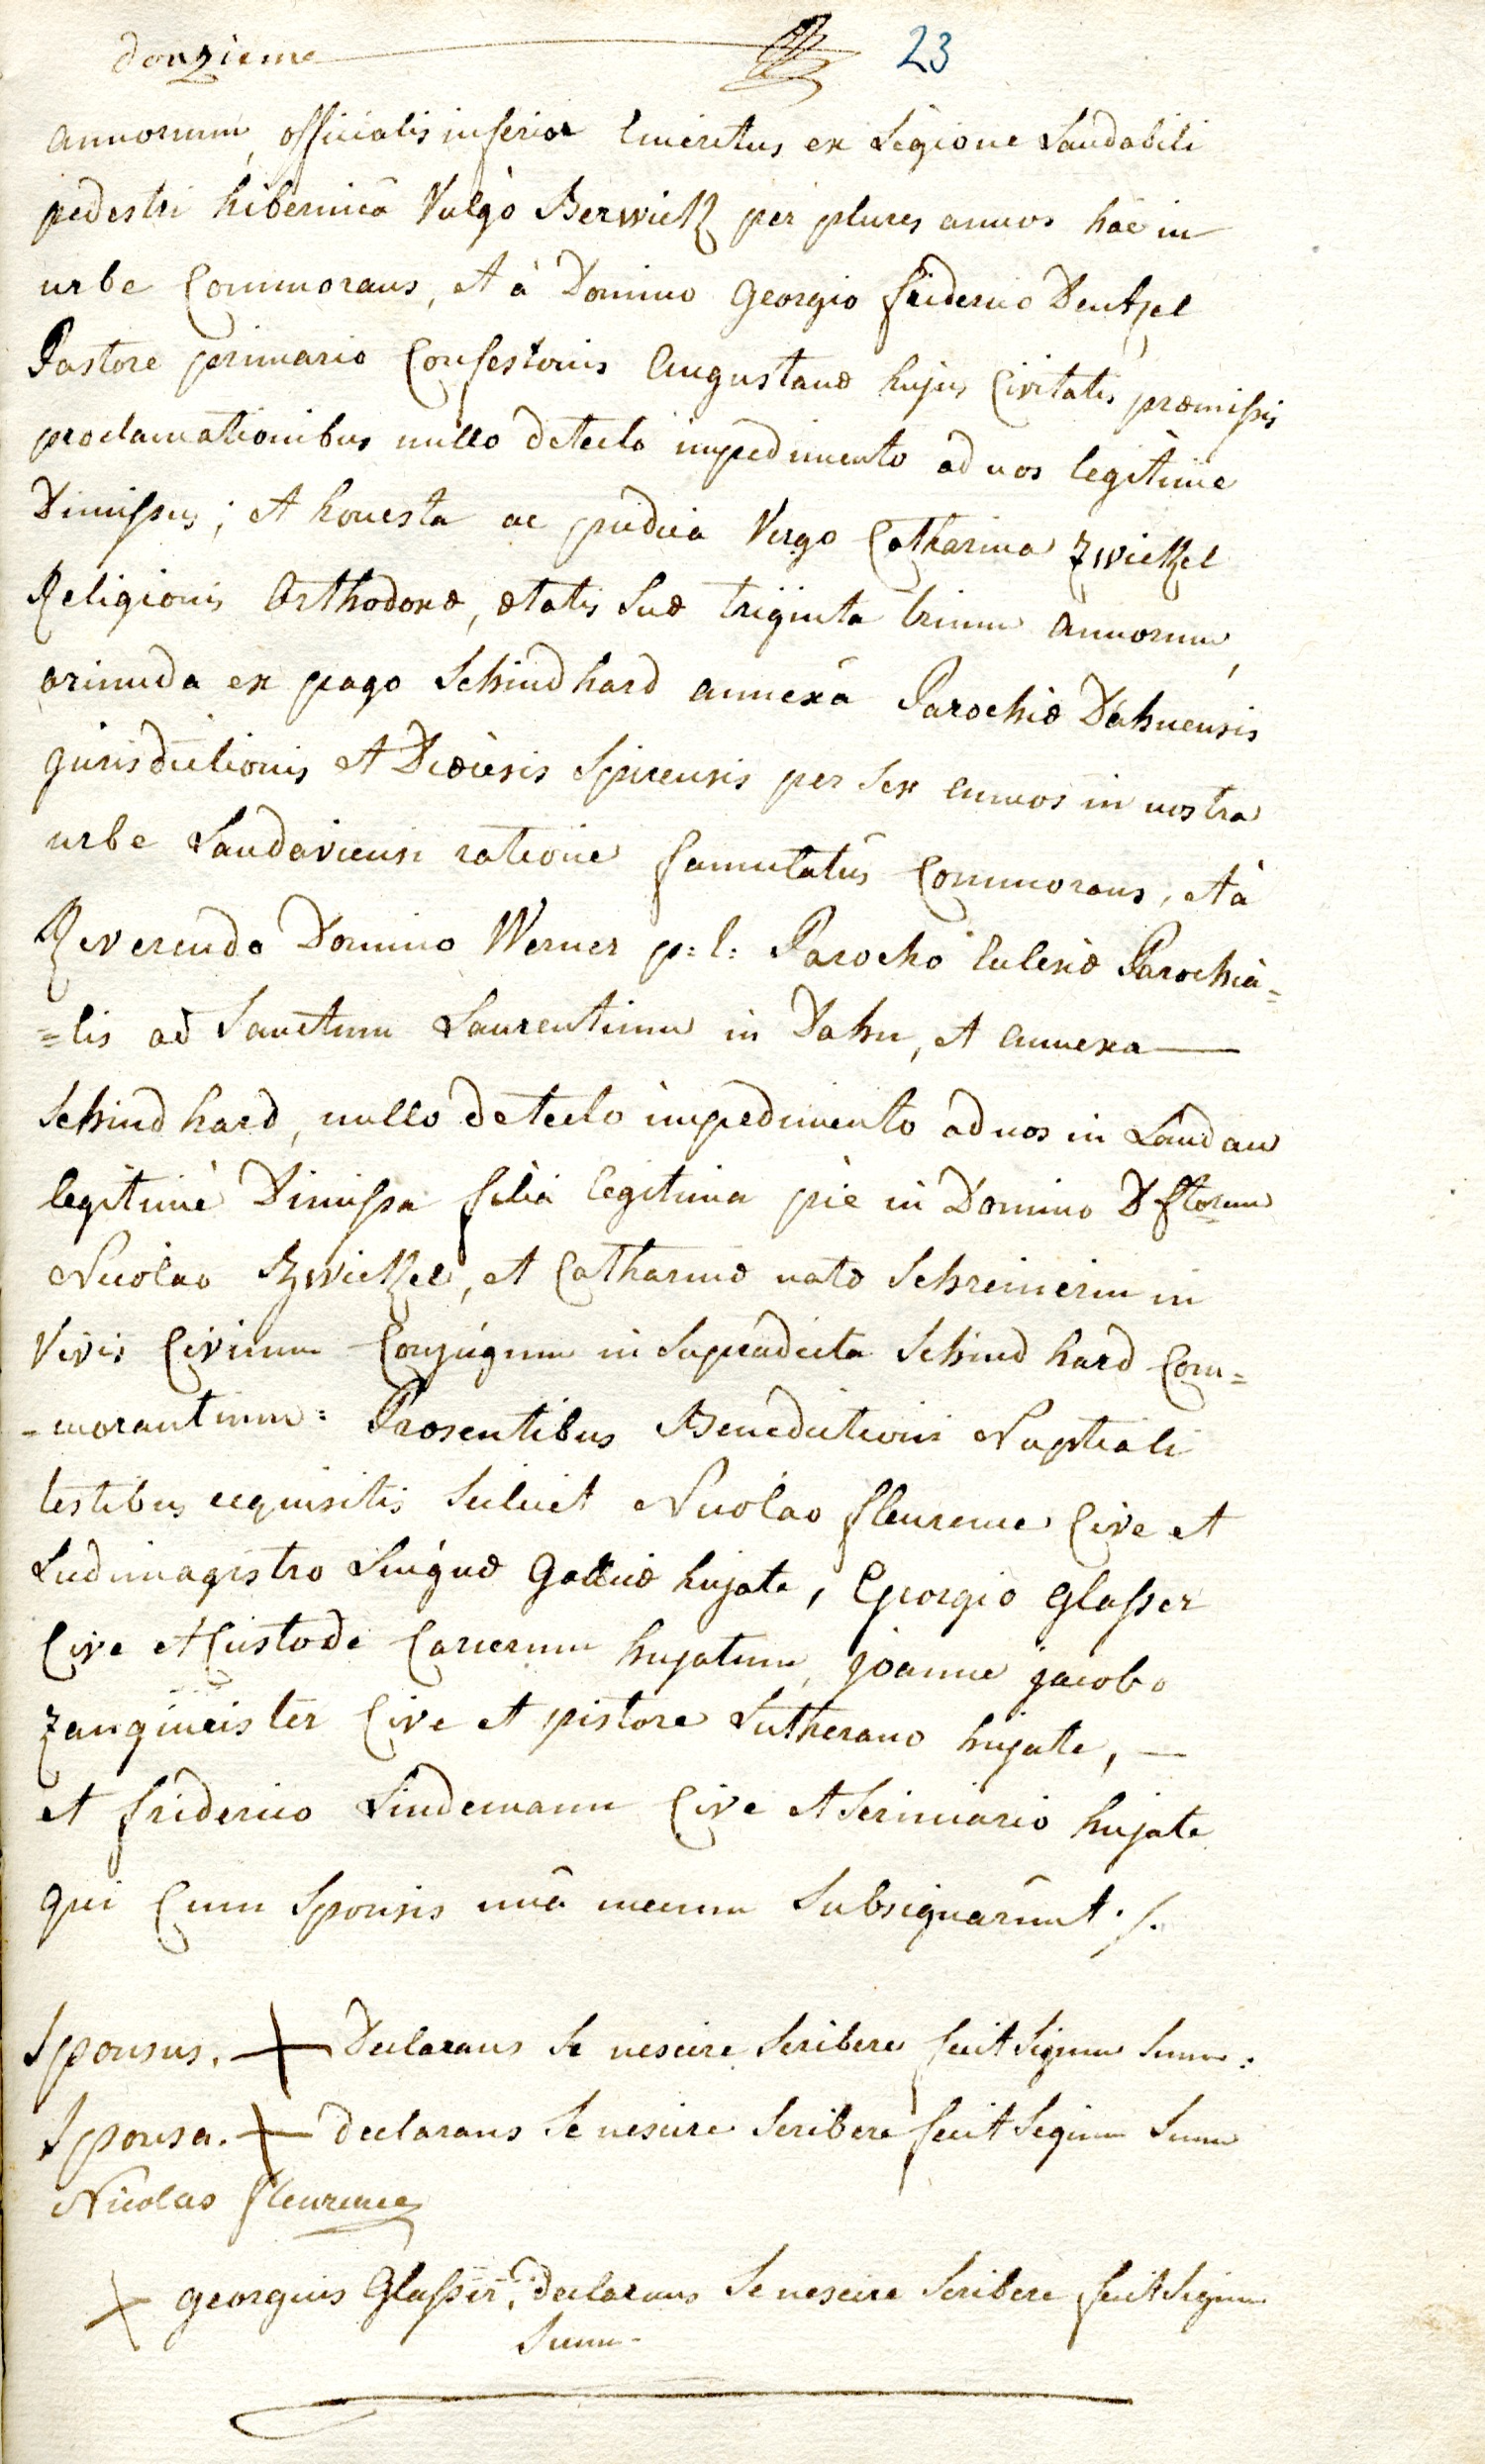 douzieme 23
annorum, officialis inferior emeritus ex Legione Laudabili
pedestri hibernicâ Vulgò Berwick per plures annos hac in
urbe Commorans, et à Domino Georgio friderico Dentzel
Pastore primario Confessionis Augustanæ hujus Civitatis præmissis
proclamationibus nullo detecto impedimento ad nos legitime
Dimissus; et honesta ac pudica Virgo Catharina Zwickel
Religionis Orthodoxæ, ætatis suæ triginta trium annorum,
oriunda ex pago Schindhard annexâ Parochiæ Dahnensis
jurisdictionis et Diœcèsis Spirensis per sex annos in nostra
urbe Landaviensi ratione famulatûs Commorans, et à
Reverendo Domino Werner p: t: Parocho Eclesiæ Parochia=
=lis ad Sanctum Laurentium in Dahn, et annexa
Schindhard, nullo detecto impedimento ad nos in Landau
legitimè Dimissa filia legitima piè in Domino Dftorum
Nicolao Zwickel, et Catharinæ natæ Schreinerin in
Vivis Civium Conjugum in supradicta Schindhard Com=
-morantium: Præsentibus Benedictioni Nuptiali
testibus requisitis scilicet Nicolao fleurence Cive et
Ludimagistro Linguæ Gallicæ hujate, Georgio Glasser
Cive et Custode Carcerum hujatum, joanne jacobo
Zangmeister Cive et pistore Lutherano hujate,
et friderico Lindemann Cive et Scriniario hujate
qui Cum Sponsis unâ mecum Subsignarûnt ./.
Sponsus. + Declarans se nescire scribere fecit signum suum:
Sponsa. + declarans se nescire scribere fecit signum suum
Nicolas fleurence
+ georgius Glasser, declarans se nescire scribere fecit signum
suum.